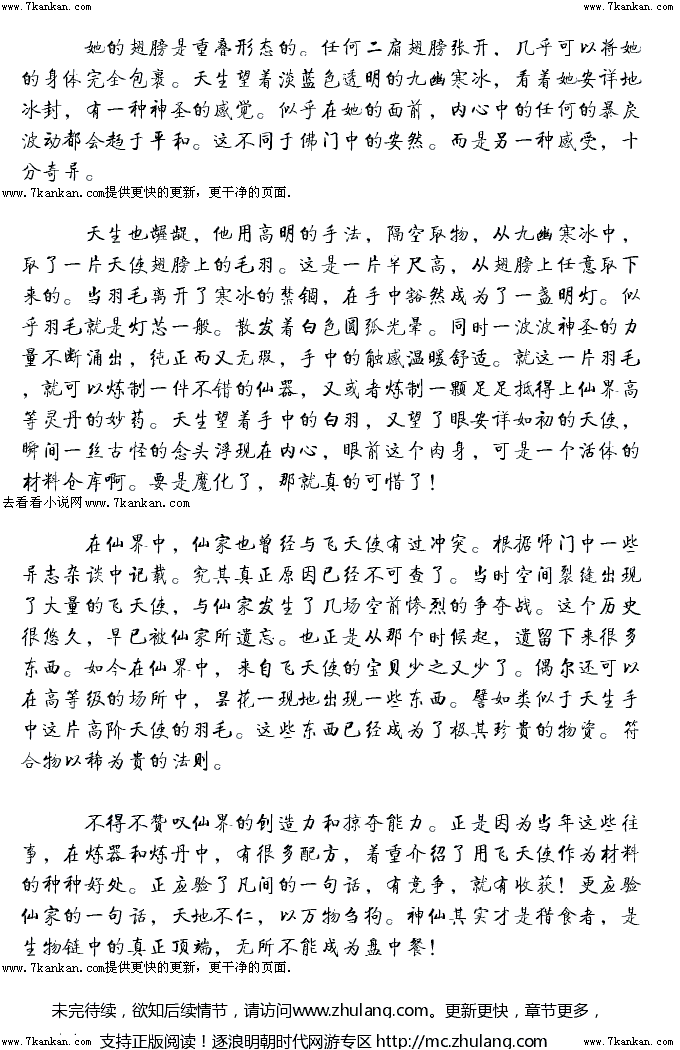 www.7kankan.com www.7kankan.com
她的翅膀是重叠形态的。任何二扇翅膀张开，几乎可以将她
的身体完全包裹。天生望着淡蓝色透明的九幽寒冰，看着她安详地
冰封，有一种神圣的感觉。似乎在她的面前，内心中的任何的暴戾
波动都会趋于平和。这不同于佛门中的安然。而是另一种感受，十
分奇异。
www.7kankan.com提供更快的更新，更干净的页面.
天生也龌龊，他用高明的手法，隔空取物，从九幽寒冰中，
取了一片天使翅膀上的毛羽。这是一片半尺高，从翅膀上任意取下
来的。当羽毛离开了寒冰的禁锢，在手中豁然成为了一盏明灯。似
乎羽毛就是灯芯一般。散发着白色圆弧光晕。同时一波波神圣的力
量不断涌出，纯正而又无瑕，手中的触感温暖舒适。就这一片羽毛
，就可以炼制一件不错的仙器，又或者炼制一颗足足抵得上仙界高
等灵丹的妙药。天生望着手中的白羽，又望了眼安详如初的天使，
瞬间一丝古怪的念头浮现在内心，眼前这个肉身，可是一个活体的
材料仓库啊。要是魔化了，那就真的可惜了！
去看看小说网www.7kankan.com
在仙界中，仙家也曾经与飞天使有过冲突。根据师门中一些
异志杂谈中记载。究其真正原因已经不可查了。当时空间裂缝出现
了大量的飞天使，与仙家发生了几场空前惨烈的争夺战。这个历史
很悠久，早已被仙家所遗忘。也正是从那个时候起，遗留下来很多
东西。如今在仙界中，来自飞天使的宝贝少之又少了。偶尔还可以
在高等级的场所中，昙花一现地出现一些东西。譬如类似于天生手
中这片高阶天使的羽毛。这些东西已经成为了极其珍贵的物资。符
合物以稀为贵的法则。
不得不赞叹仙界的创造力和掠夺能力。正是因为当年这些往
事，在炼器和炼丹中，有很多配方，着重介绍了用飞天使作为材料
的种种好处。正应验了凡间的一句话，有竞争，就有收获！更应验
仙家的一句话，天地不仁，以万物刍狗。神仙其实才是猎食者，是
生物链中的真正顶端，无所不能成为盘中餐！
www.7kankan.com提供更快的更新，更干净的页面.
未完待续，欲知后续情节，请访问www.zhulang.com。更新更快，章节更多，
支持正版阅读！逐浪明朝时代网游专区 http://mc.zhulang.com
www.7kankan.com www.7kankan.com